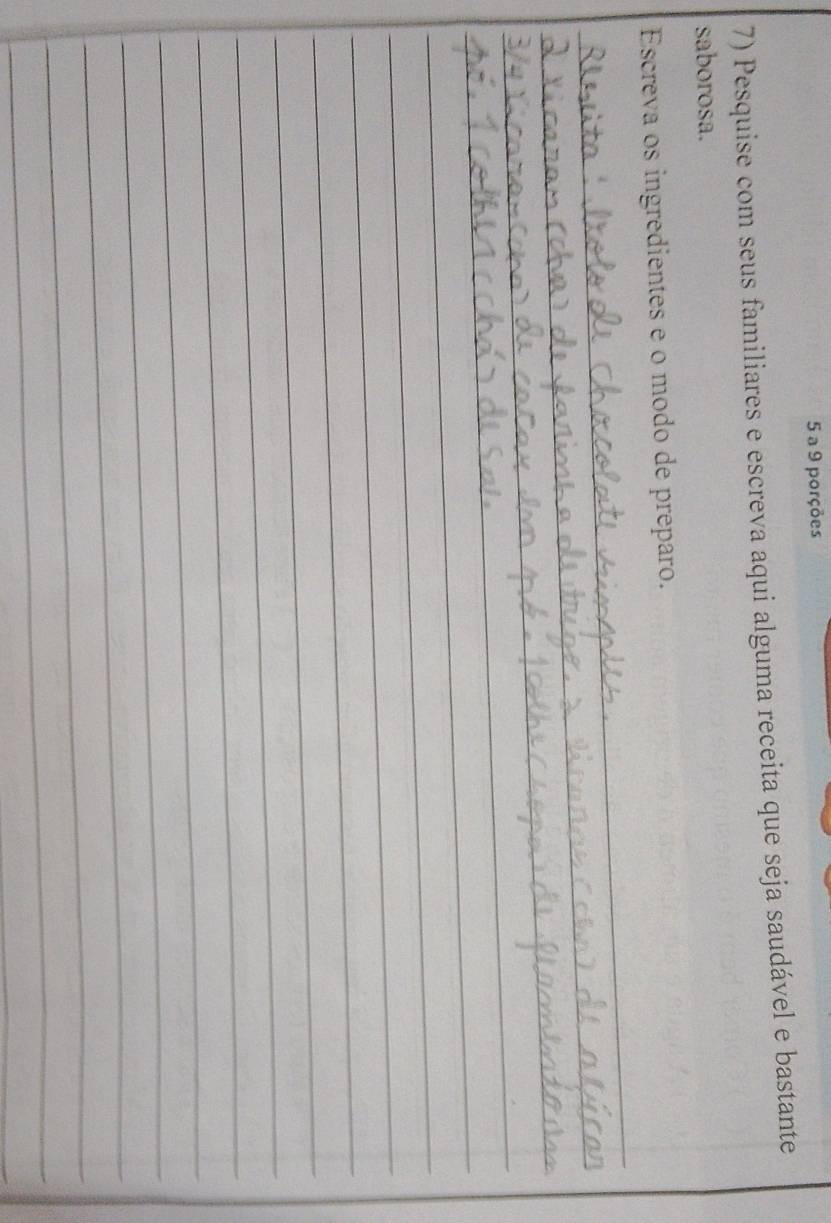 5 a 9 porções
7) Pesquise com seus familiares e escreva aqui alguma receita que seja saudável e bastante
saborosa.
Escreva os ingredientes e o modo de preparo.
Receita: Bolo de chocolate simples.
2 xicaras (cha) de farinha de trigo. 2 xicaras (cha) de açúcar
3/4 xicaras (cha) de cacau em pó. 1 colher (sopa) de fermento em
pó. 1 colher (chá) de sal.